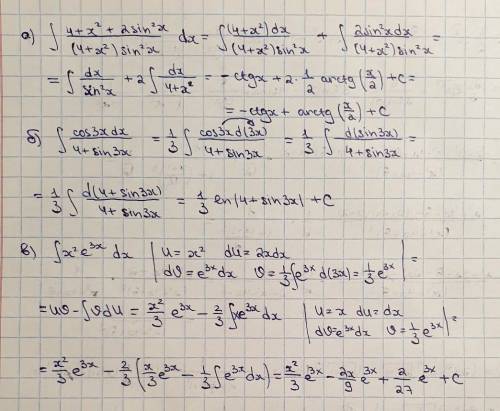 а) ∫ (4+x²+2sin²x)/((4+x²)sin²x) dx = ∫ ((4+x²)dx)/((4+x²)sin²x) + ∫ (2sin²xdx)/((4+x²)sin²x) =
= ∫ dx/sin²x + 2∫ dx/(4+x²) = -ctgx + 2·1/2 arctg(x/2) + C =
= -ctgx + arctg(x/2) + C
б) ∫ cos3xdx/(4+sin3x) = 1/3 ∫ cos3xd(3x)/(4+sin3x) = 1/3 ∫ d(sin3x)/(4+sin3x) =
= 1/3 ∫ d(4+sin3x)/(4+sin3x) = 1/3 ln|4+sin3x| + C
в) ∫x²e³ˣ dx | u=x² du=2xdx
dϑ=e³ˣdx ϑ=1/3∫e³ˣd(3x)=1/3e³ˣ | =
= uϑ - ∫ϑdu = x²/3 e³ˣ - 2/3 ∫xe³ˣdx | u=x du=dx
dϑ=e³ˣdx ϑ=1/3e³ˣ | =
= x²/3 e³ˣ - 2/3 (x/3 e³ˣ - 1/3 ∫e³ˣdx) = x²/3 e³ˣ - 2x/9 e³ˣ + 2/27 e³ˣ + C